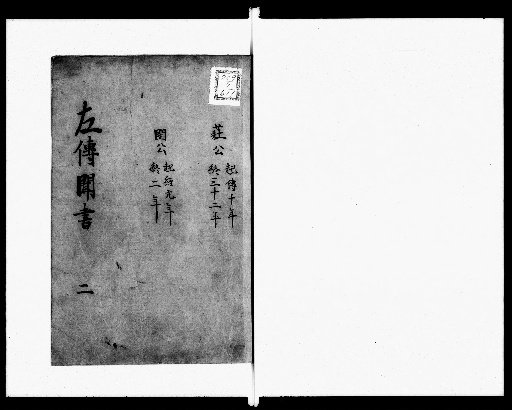 莊公 起傳十年
終三十二年
閔公 起傳元年
終二年
左傳聞書 二